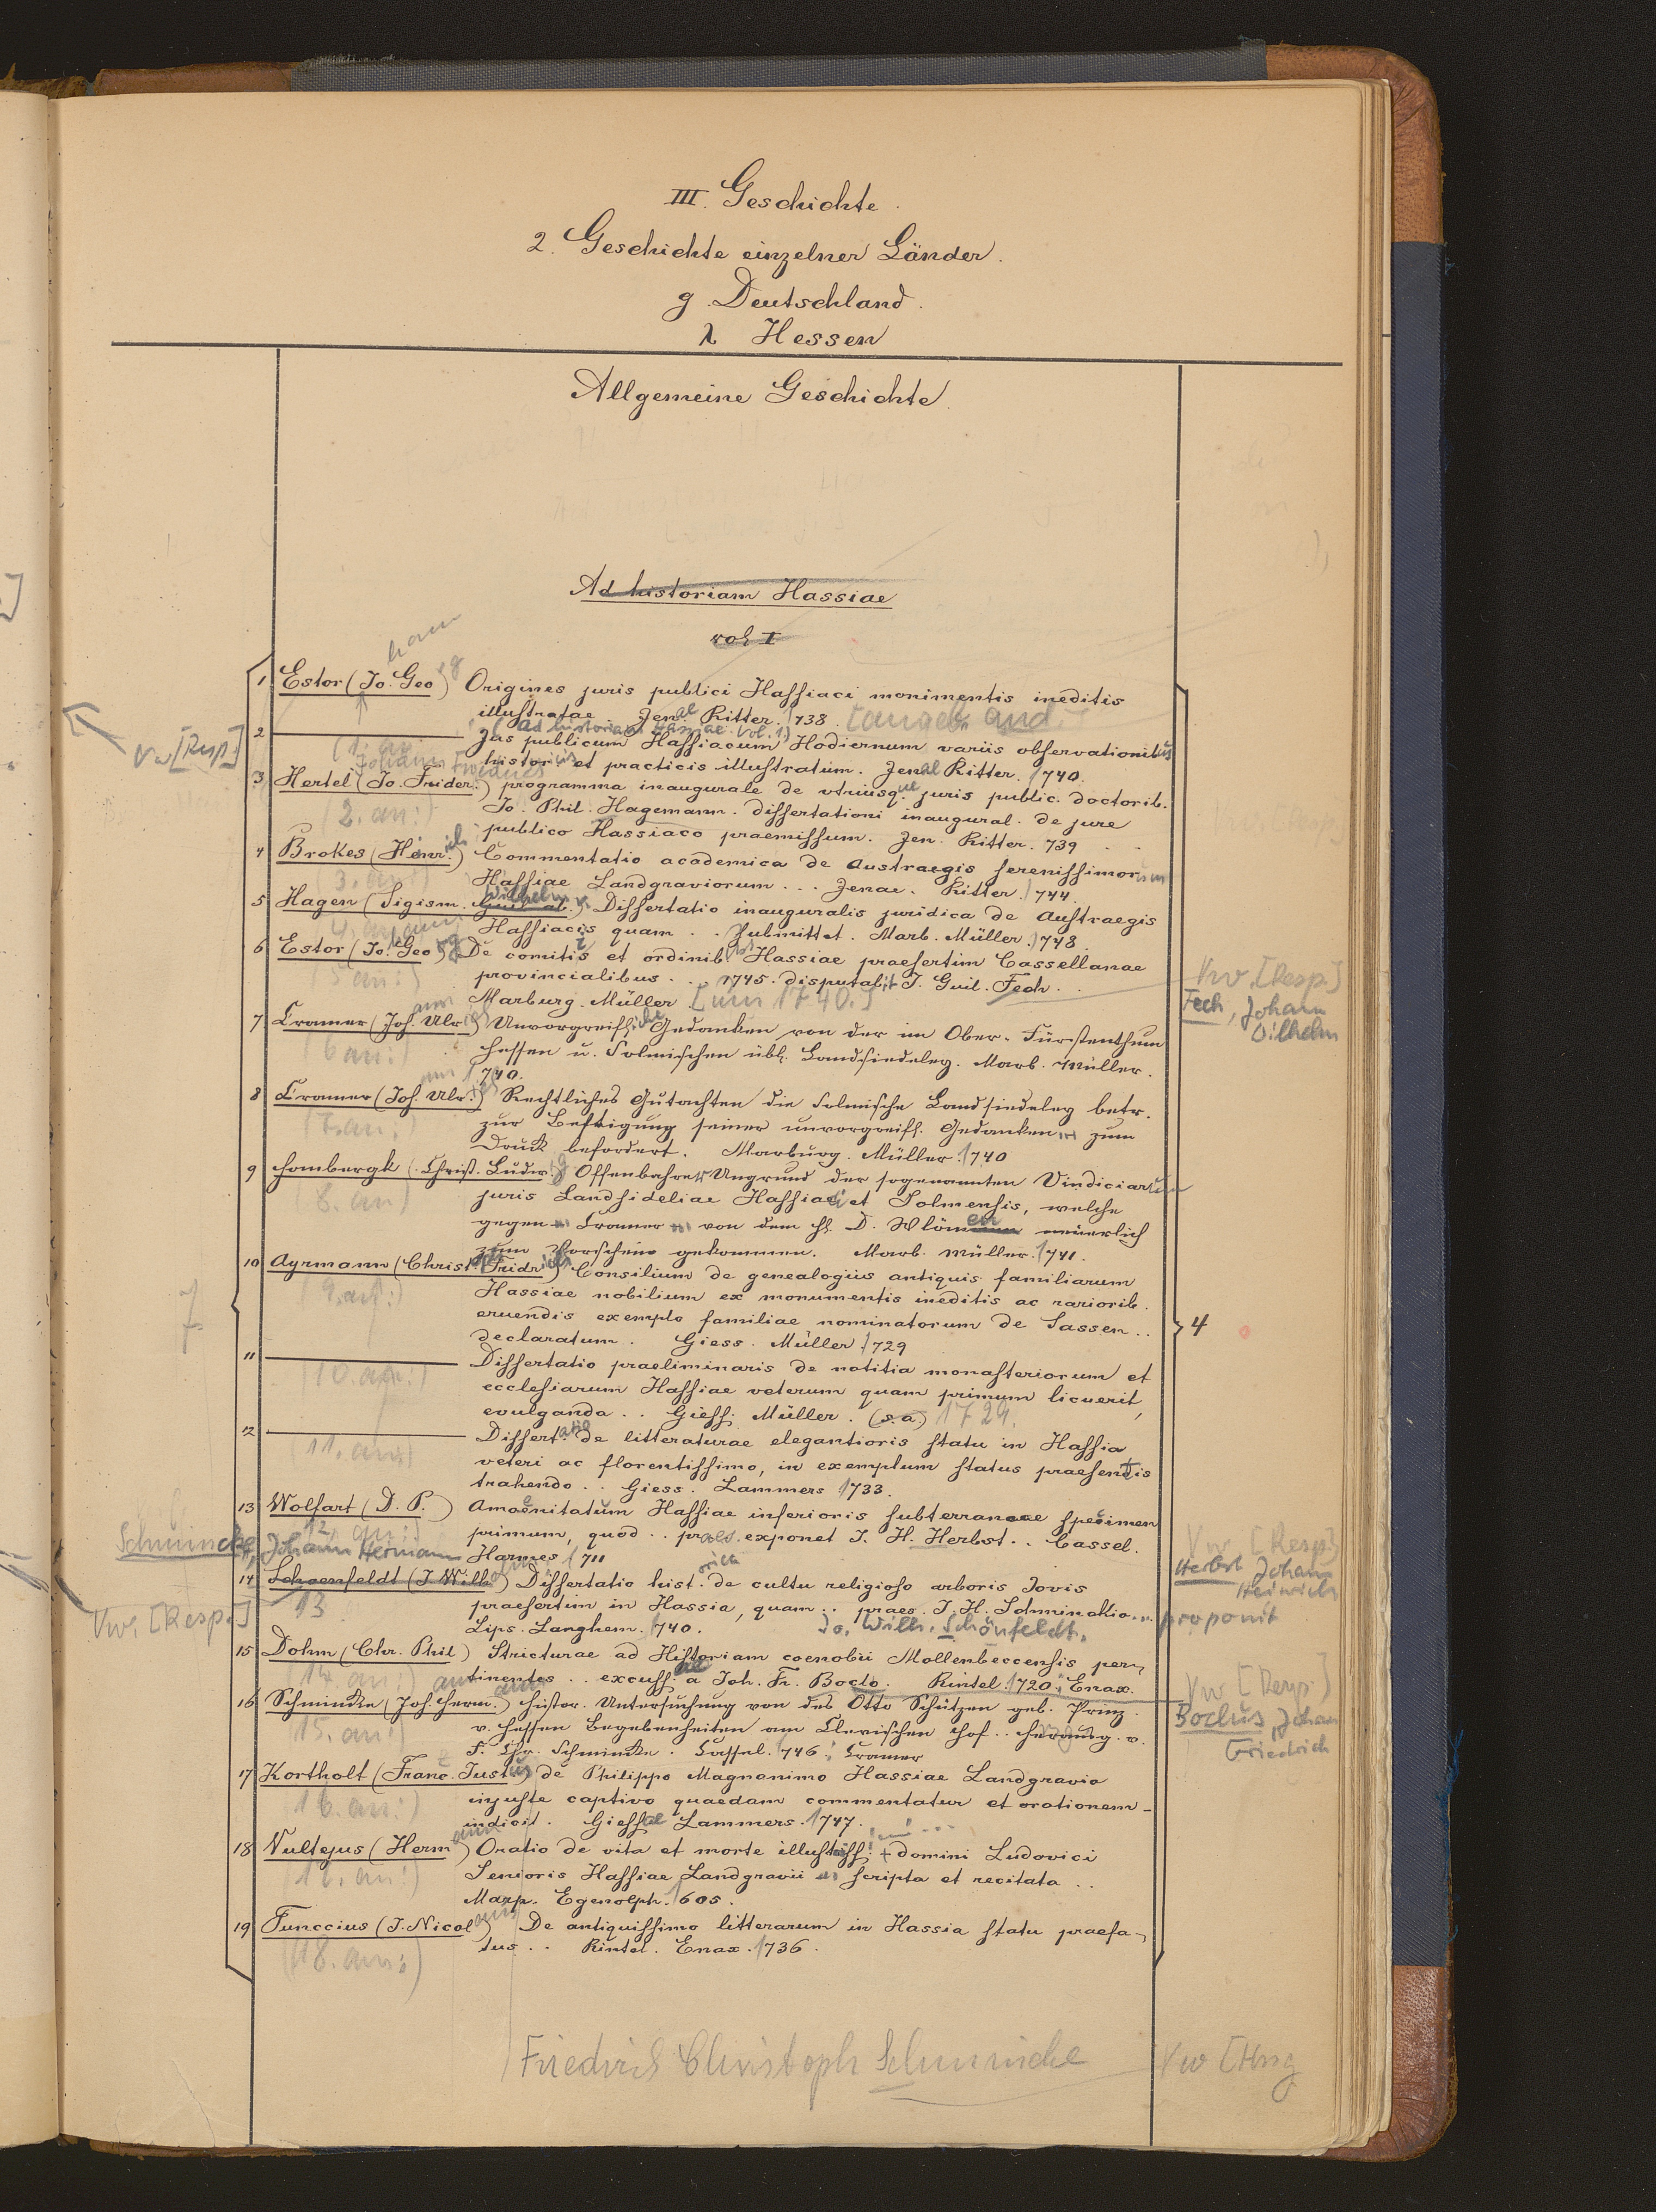 III. Geschichte.
2. Geschichte einzelner Länder.
g. Deutschland.
λ Hessen
Allgemeine Geschichte.
Ad historiam Hassiae
vol I
1 Estor (Jo. Geo) Origines juris publici Hassiaci monimentis ineditis
illustratae. Jenae Ritter. 1738. [angeb. and.]
(Ad historiam Hassiae. Vol. 1)
2 Jus publicum Hassiacum Hodiernum variis observationibus
(1. an:)
Vw [Resp.]
historicis et practicis illustratum. Jenae Ritter. 1740.
Johann Friedrich
3 Hertel (Jo. Frider.) programma inaugurale de utriusque juris public. doctorib.
(2. an:) Jo. Phil. Hagemann. dissertationi inaugural. de jure
publico Hassiaco praemissum. Jen. Ritter. 739
4 Brokes (Henrich) Commentatio academica de Austraegis serenissimorum
(3. an:) Hassiae Landgraviorum... Jenae. Ritter. 1744.
5 Hagen (Sigism. Wilhelm v.) Dissertatio inauguralis juridica de Austraegis
(4. an:) Hassiacis quam.. submittet. Marb. Müller. 1748
6 Estor (Jo. Georg) De comitiis et ordinibus Hassiae praesertim Cassellanae
(5 an:) provincialibus... 1745. disputabit J. Guil. Fech..
Vw. [Resp.]
Fech, Johann
Wilhelm
Marburg. Müller. [um 1740.]
7 Cramer (Joh. Ulrich) Unvorgreifliche Gedanken von der im Ober-Fürstenthum
(6 an:) Hessen u. Solmischen übl. Landsiedeley. Marb. Müller.
1740.
8 Cramer (Joh. Ulr.) Rechtliches Gutachten die Solmische Landsiedeley betr.
(7. an:) zur Bestigung seiner unvorgreifl. Gedanken zum
Druck befordert. Marburg. Müller. 1740
9 Hombergk (Christ. Ludw.) Offenbahrer Ungrund der sogenannten Vindiciarum
(8. an) juris Landsideliae Hassiaci et Solmensis, welche
gegen Cramer von dem H. D. neuerlich
zum Vorschein gekommen. Marb. Müller. 1741.
10 Ayrmann (Christ. Fridrich) Consilium de genealogiis antiquis familiarum
(9. an:) Hassiae nobilium ex monumentis ineditis ac rariorib.
eruendis exemplo familiae nominatorum de Sassen..
4
declaratum. Giess. Müller 1729
11 Dissertatio praeliminaris de notitia monasteriorum et
(10. an:) ecclesiarum Hassiae veterum quam primum licuerit,
evulganda.. Giess. Müller. (s. a.) 1729.
12 Dissertatio de litteraturae elegantioris statu in Hassia
(11. an:) veteri ac florentissimo, in exemplum status praesentis
trahendo.. Giess. Lammers 1733.
13 Wolfart (D. P.) Amoenitatum Hassiae inferioris subterraneae specimen
(12. an:) primum, quod.. praes. exponet J. H. Herbst.. Cassel.
Vw [Resp.]
Herbst Johann
Heinrich
Schmincke, Johann Hermann Harmes 1711
14 Schoenfeldt (J. Wilh) Dissertatio historica de cultu religioso arboris Jovis
13 praesertim in Hassia, quam.. praes. J. H. Schminckio.. proponit
Vw. [Resp.]
Lips. Langhem. 1740. Jo. Wilh. Schönfeldt.
15 Dohm (Chr. Phil) Stricturae ad Historiam coenobii Mollenbeccensis per-
(14. an:) tinentes.. excussae a Joh. Fr. Boclo. Rintel. 1720. Enax.
Vw [Resp.]
Boclus, Johann
Friedrich
16 Schmincke (Joh. Herm.) Histor. Untersuchung von des Otto Schützen geb. Prinz.
(15. an:) v. Hessen Begebenheiten am Clevischen Hof.. herausg. v.
F. Chr. Schmincke. Cassel. 1746. Cramer
17 Kortholt (Franc. Justus) de Philippo Magnanimo Hassiae Landgravio
(16. an:) injuste captivo quaedam commentatur et orationem-
indicit. Giessae Lammers. 1747.
18 Vultejus (Hermann) Oratio de vita et morte illustriss. domini Ludovici
(17. an:) Senioris Hassiae Landgravii scripta et recitata..
Marp. Egenolph. 1605.
19 Funccius (J. Nicolaus) De antiquissimo litterarum in Hassia statu praefa-
(18. an:) tus.. Rintel. Enax. 1736.
Friedrich Christoph Schmincke Vw [Hrsg